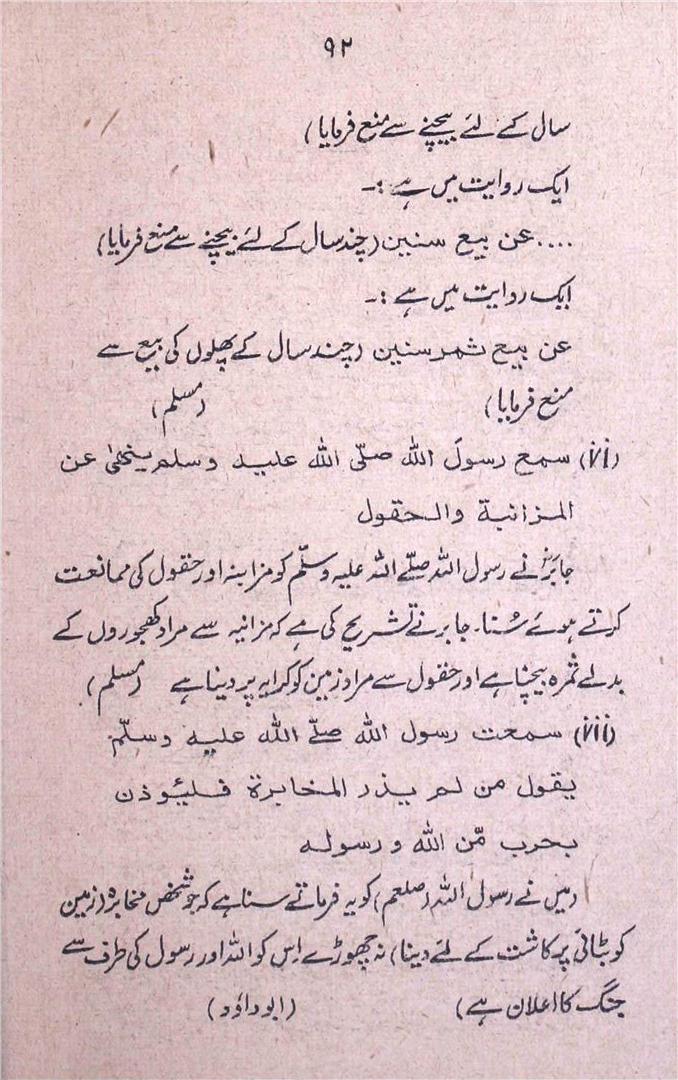 ۹۲
سال کے لئے بیچنے سے منع فرمایا)
ایک روایت میں ہے :۔
....عن بیع سنین (چند سال کے لئے بیچنے سے منع فرمایا)
ایک روایت میں ہے :۔
عن بیع ثمر سنین (چند سال کے پھلوں کی بیع سے
منع فرمایا) (مسلم)
(vi) سمع رسولَ اللہ صلّی اللہ علیہ وسلم ینھیٰ عن
المزانبة والحقول
جابرؓ نے رسول اللہ صلے اللہ علیہ وسلّم کو مزابنہ اور حقول کی ممانعت
کرتے ہوئے سُنا۔ جابر نے تشریح کی ہے کہ مزانبہ سے مراد کھجوروں کے
بدلے ثمرہ بیچنا ہے اور حقول سے مراد زمین کو کرایہ پر دینا ہے (مسلم)
(vii) سمعت رسول اللہ صلّے اللہ علیہ وسلّم
یقول من لم یذر المخابرة فلیئوذن
بحرب مّن اللہ و رسولہ
(میں نے رسول اللہ (صلعم) کو یہ فرماتے سنا ہے کہ جو شخص مخابرہ (زمین
کو بٹائی پر کاشت کے لئے دینا) نہ چھوڑے اس کو اللہ اور رسول کی طرف سے
جنگ کا اعلان ہے) (ابوداؤد)